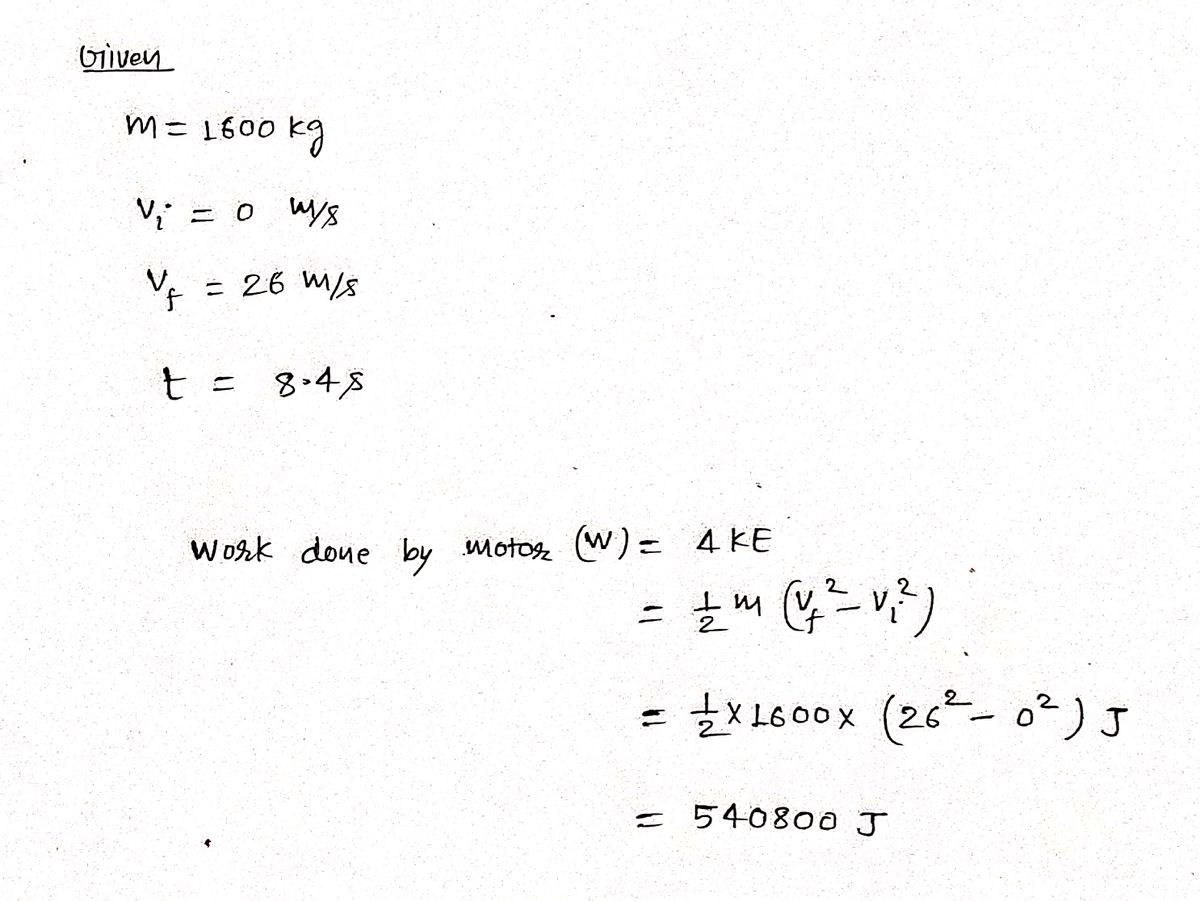 Given
m = 1600 kg
v_i = 0 m/s
v_f = 26 m/s
t = 8.4 s
Work done by motor (W) = Δ KE
= 1/2 m (v_f² - v_i²)
= 1/2 × 1600 × (26² - 0²) J
= 540800 J